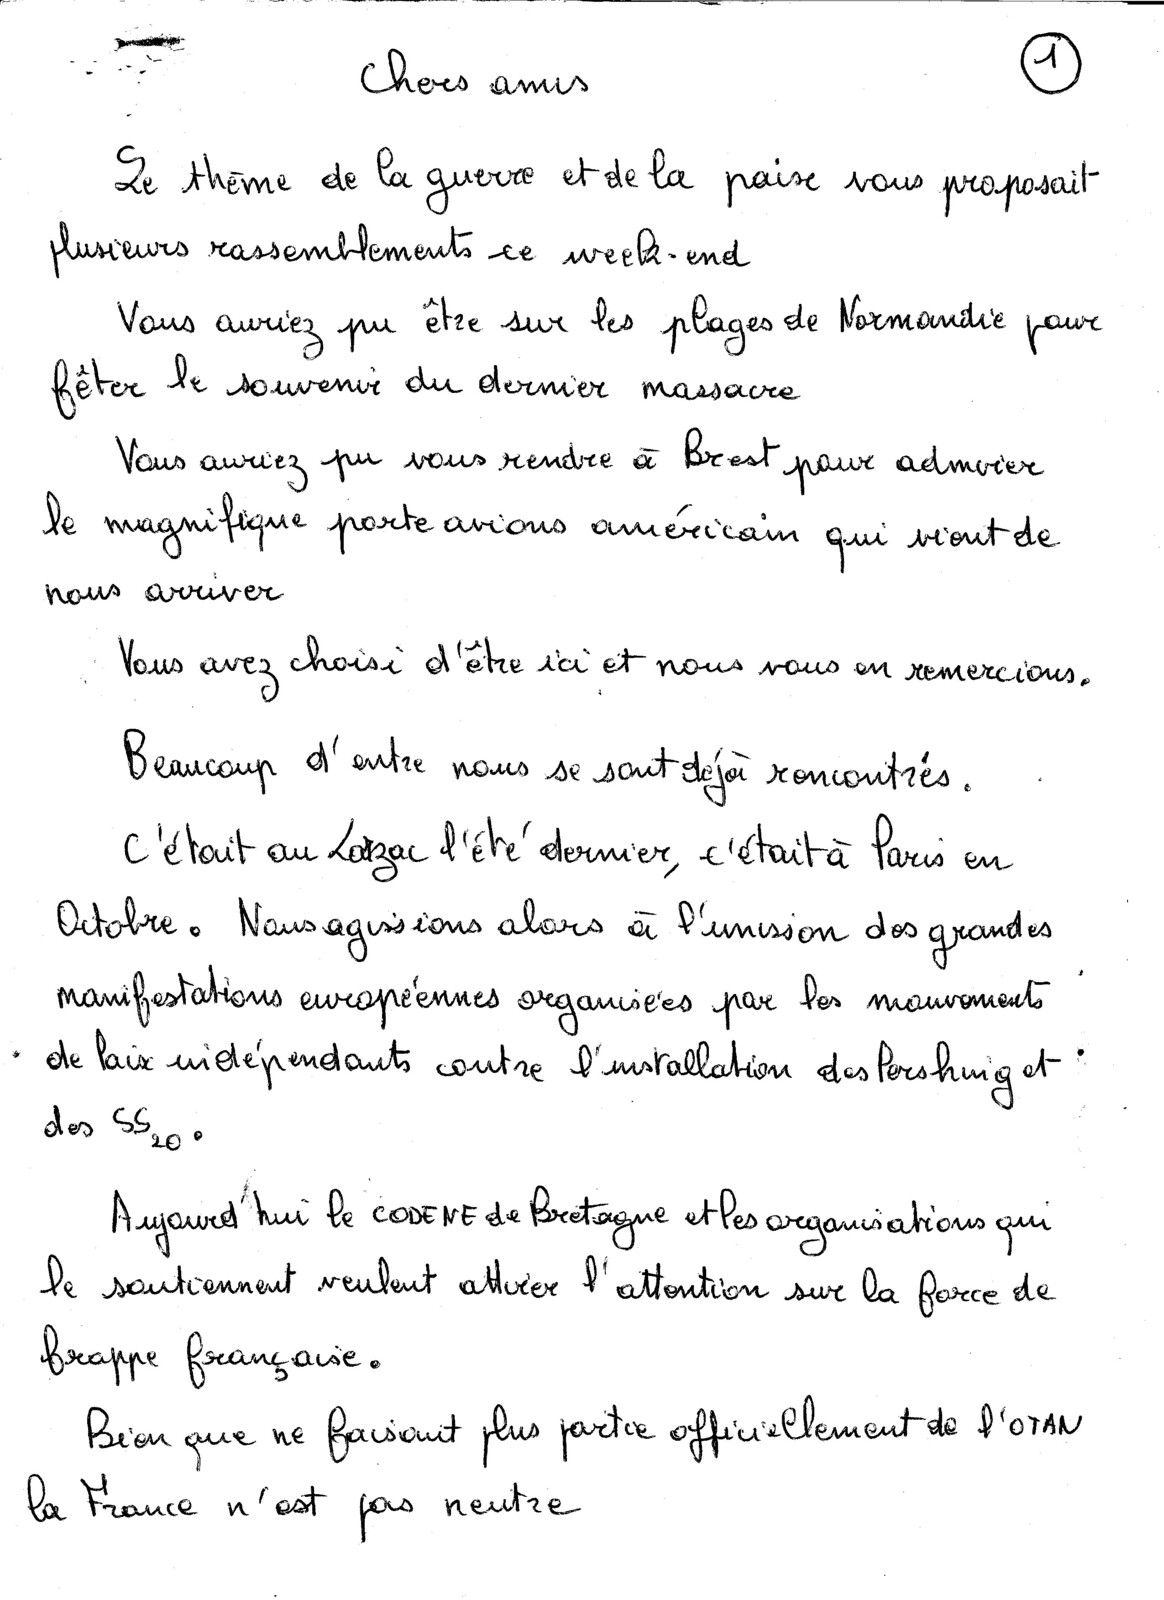 1
Chers amis
Le thème de la guerre et de la paix vous proposait
plusieurs rassemblements ce week-end
Vous auriez pu être sur les plages de Normandie pour
fêter le souvenir du dernier massacre
Vous auriez pu vous rendre à Brest pour admirer
le magnifique porte avions américain qui vient de
nous arriver
Vous avez choisi d'être ici et nous vous en remercions.
Beaucoup d'entre nous se sont déjà rencontrés.
C'était au Larzac l'été dernier, c'était à Paris en
Octobre. Nous agissions alors à l'unisson des grandes
manifestations européennes organisées par les mouvements
de Paix indépendants contre l'installation des Pershing et
des SS20.
Aujourd'hui le CODENE de Bretagne et les organisations qui
le soutiennent veulent attirer l'attention sur la force de
frappe française.
Bien que ne faisant plus partie officiellement de l'OTAN
la France n'est pas neutre